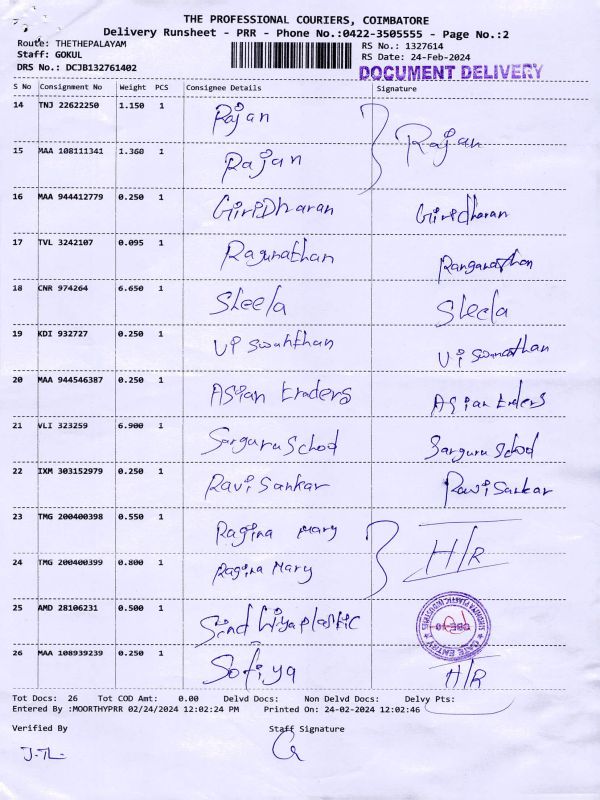 THE PROFESSIONAL COURIERS, COIMBATORE
Delivery Runsheet - PRR - Phone No.:0422-3505555 - Page No.:2
Route: THETHEPALAYAM RS No.: 1327614
Staff: GOKUL RS Date: 24-Feb-2024
DRS No.: DCJB132761402 DOCUMENT DELIVERY
S No Consignment No Weight PCS Consignee Details Signature
14 TNJ 22622250 1.150 1 Rajan Rajan
15 MAA 108111341 1.360 1 Rajan
16 MAA 944412779 0.250 1 GiriDharan Giridharan
17 TVL 3242107 0.095 1 Ragunathan Ranganathan
18 CNR 974264 6.650 1 Sheela Sheela
19 KDI 932727 0.250 1 Viswanthan Viswanathan
20 MAA 944546387 0.250 1 Asian traders Asian traders
21 VLI 323259 6.900 1 Sarguru School Sarguru School
22 IXM 303152979 0.250 1 Ravi Sankar Ravi Sankar
23 TMG 200400398 0.550 1 Ragina Mary H/R
24 TMG 200400399 0.800 1 Ragina Mary
25 AMD 28106231 0.500 1 plastic
26 MAA 108939239 0.250 1 Sofiya H/R
Tot Docs: 26 Tot COD Amt: 0.00 Delvd Docs: Non Delvd Docs: Delvy Pts:
Entered By :MOORTHYPRR 02/24/2024 12:02:24 PM Printed On: 24-02-2024 12:02:46
Verified By Staff Signature